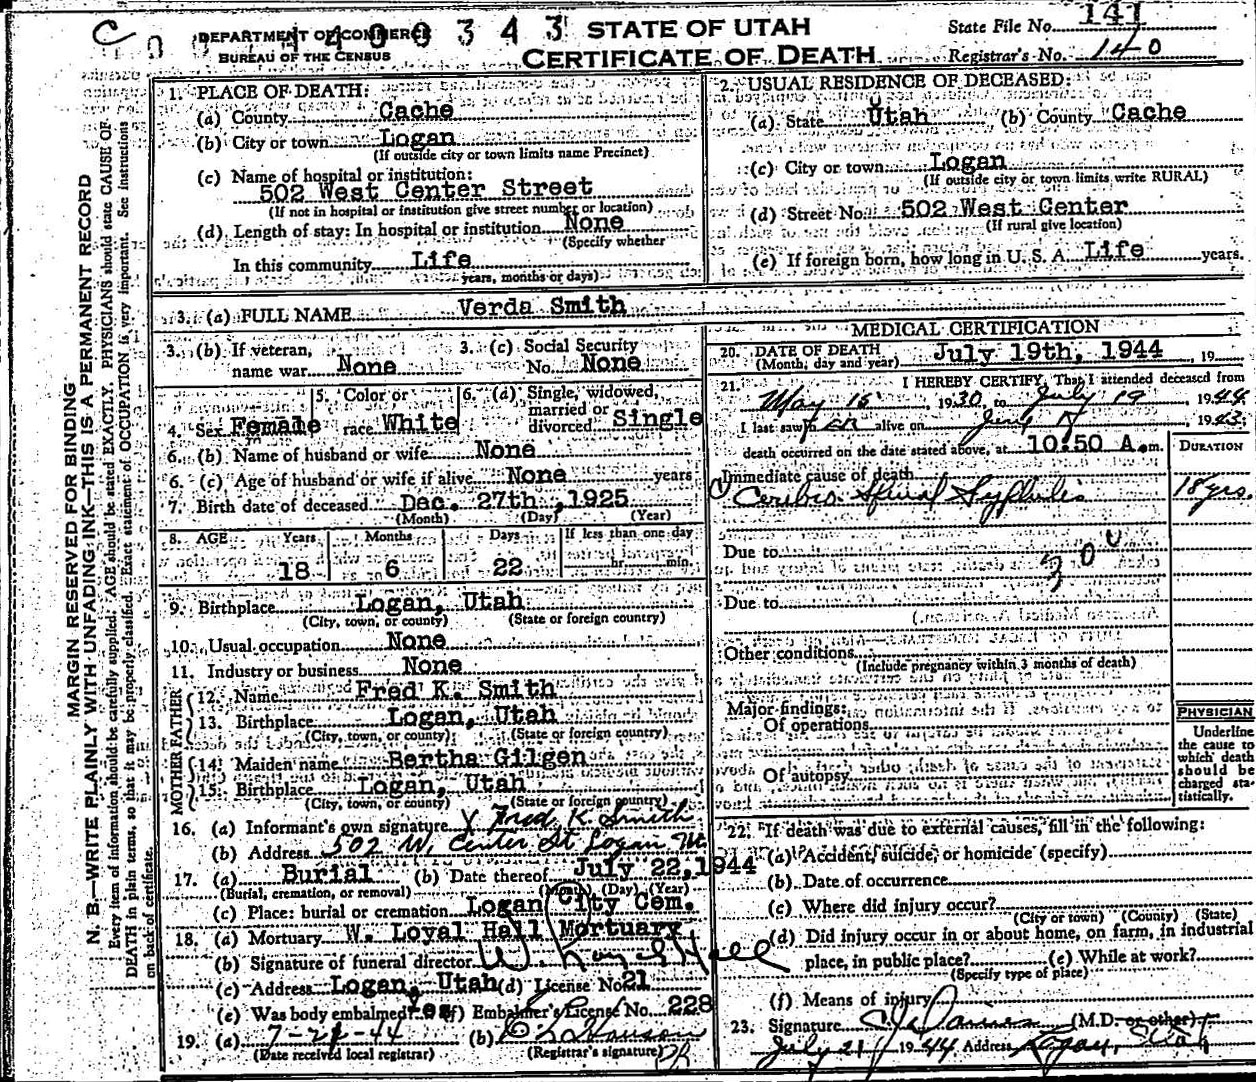 DEPARTMENT OF COMMERCE
BUREAU OF THE CENSUS
STATE OF UTAH
CERTIFICATE OF DEATH
State File No. 141
Registrar's No. 140
MARGIN RESERVED FOR BINDING
N. B.—WRITE PLAINLY WITH UNFADING INK—THIS IS A PERMANENT RECORD
Every item of information should be carefully supplied. AGE should be stated EXACTLY. PHYSICIANS should state CAUSE OF
DEATH in plain terms, so that it may be properly classified. Exact statement of OCCUPATION is very important. See instructions
on back of certificate.
1. PLACE OF DEATH:
(a) County Cache
(b) City or town Logan
(If outside city or town limits name Precinct)
(c) Name of hospital or institution:
502 West Center Street
(If not in hospital or institution give street number or location)
(d) Length of stay: In hospital or institution None
(Specify whether
In this community Life
years, months or days)
2. USUAL RESIDENCE OF DECEASED:
(a) State Utah (b) County Cache
(c) City or town Logan
(If outside city or town limits write RURAL)
(d) Street No. 502 West Center
(If rural give location)
(e) If foreign born, how long in U. S. A. Life years.
3. (a) FULL NAME Verda Smith
3. (b) If veteran, name war None
3. (c) Social Security No. None
4. Sex Female
5. Color or race White
6. (a) Single, widowed, married or divorced Single
6. (b) Name of husband or wife None
6. (c) Age of husband or wife if alive None years
7. Birth date of deceased Dec. 27th, 1925
(Month) (Day) (Year)
8. AGE Years Months Days If less than one day
18 6 22 hr. min.
9. Birthplace Logan, Utah
(City, town, or county) (State or foreign country)
10. Usual occupation None
11. Industry or business None
FATHER
12. Name Fred K. Smith
13. Birthplace Logan, Utah
(City, town, or county) (State or foreign country)
MOTHER
14. Maiden name Bertha Gilgen
15. Birthplace Logan, Utah
(City, town, or county) (State or foreign country)
16. (a) Informant's own signature X Fred K. Smith
(b) Address 502 W. Center St Logan
17. (a) Burial (b) Date thereof July 22, 1944
(Burial, cremation, or removal) (Month) (Day) (Year)
(c) Place: burial or cremation Logan City Cem.
18. (a) Mortuary W. Loyal Hall Mortuary
(b) Signature of funeral director W. Loyal Hall
(c) Address Logan, Utah (d) License No 21
(e) Was body embalmed? Yes (f) Embalmer's License No. 228
19. (a) 7-21-44 (b)
(Date received local registrar) (Registrar's signature)
MEDICAL CERTIFICATION
20. DATE OF DEATH July 19th, 1944, 19
(Month, day and year)
21. I HEREBY CERTIFY, That I attended deceased from
May 15, 1930, to July 19, 1944
I last saw her alive on 1943;
death occurred on the date stated above, at 10:50 A.m.
DURATION
Immediate cause of death
Cerebro Spinal Syphilis 18 yrs.
Due to
Due to
Other conditions
(Include pregnancy within 3 months of death)
Major findings:
Of operations
Of autopsy
PHYSICIAN
Underline
the cause to
which death
should be
charged sta-
tistically.
22. If death was due to external causes, fill in the following:
(a) Accident, suicide, or homicide (specify)
(b) Date of occurrence
(c) Where did injury occur?
(City or town) (County) (State)
(d) Did injury occur in or about home, on farm, in industrial
place, in public place? (e) While at work?
(Specify type of place)
(f) Means of injury
23. Signature (M.D. or other)
July 21 1944 Address Logan, Utah